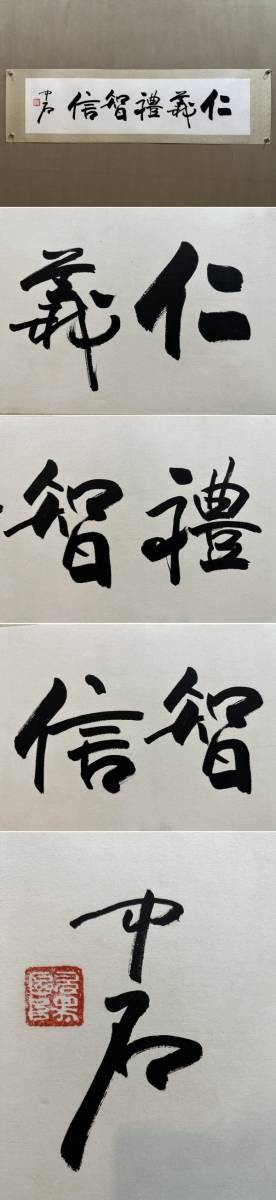 仁義禮智信
中石
仁義
禮智
智信
中石